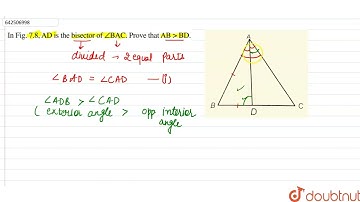 642506998
In Fig. 7.8, AD is the bisector of ∠BAC. Prove that AB > BD.
divided → 2 equal parts
∠BAD = ∠CAD —(i)
∠ADB > ∠CAD
( exterior angle > opp interior
angle
A
B
D
C
doubtnut